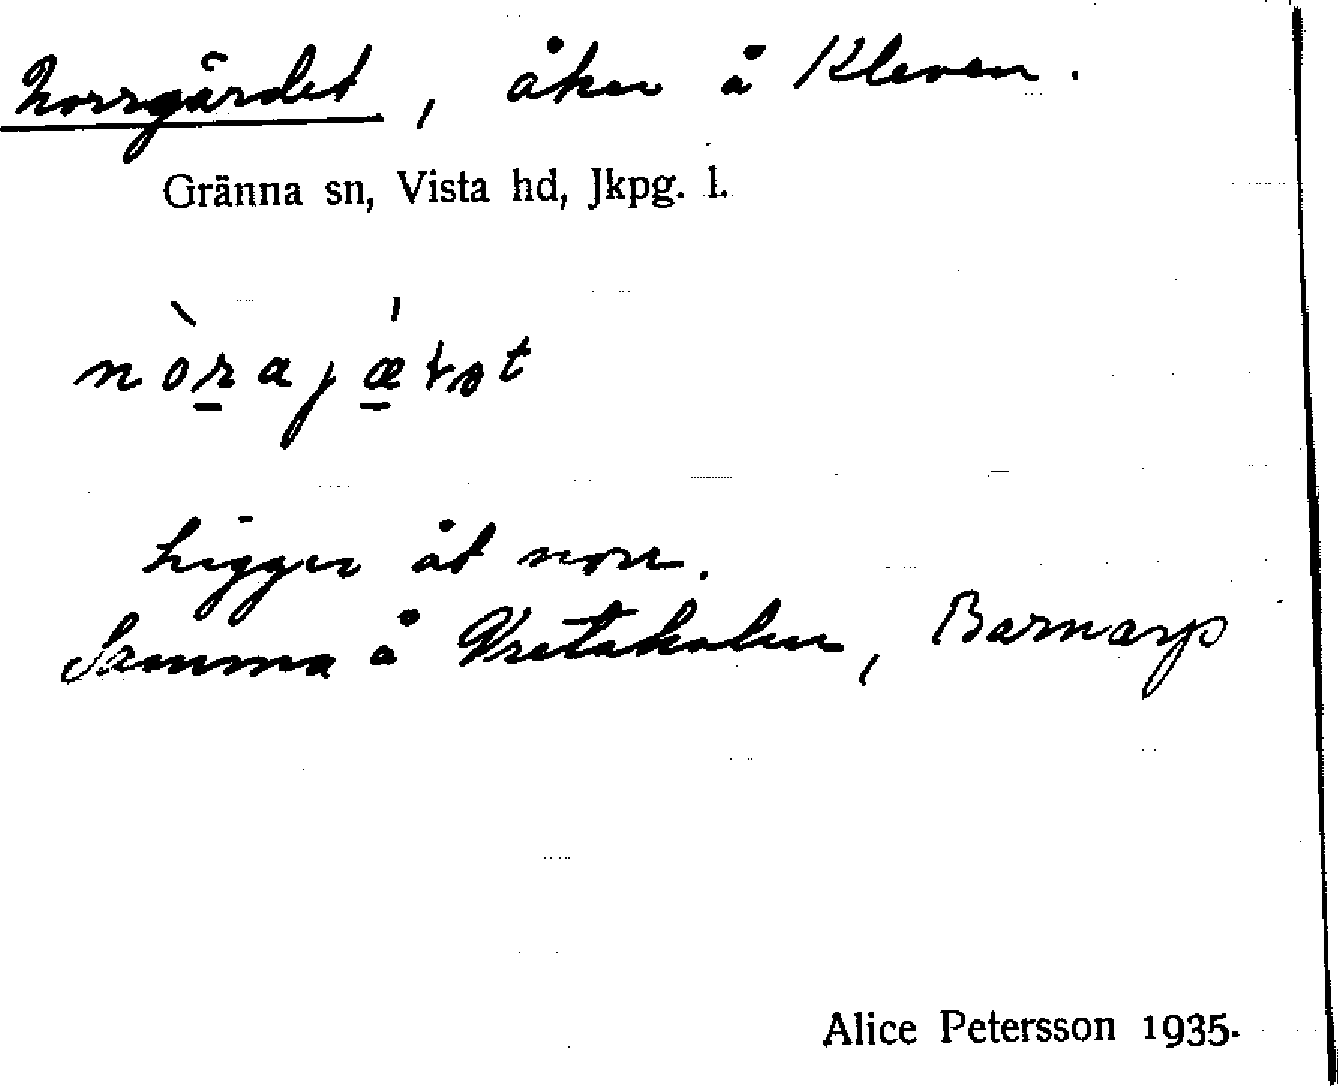 Norrgärdet, åker å Kleven.
Gränna sn, Vista hd, Jkpg. l.
Ligger åt norr.
Samma å Vretaholm, Barnarp
Alice Petersson 1935.